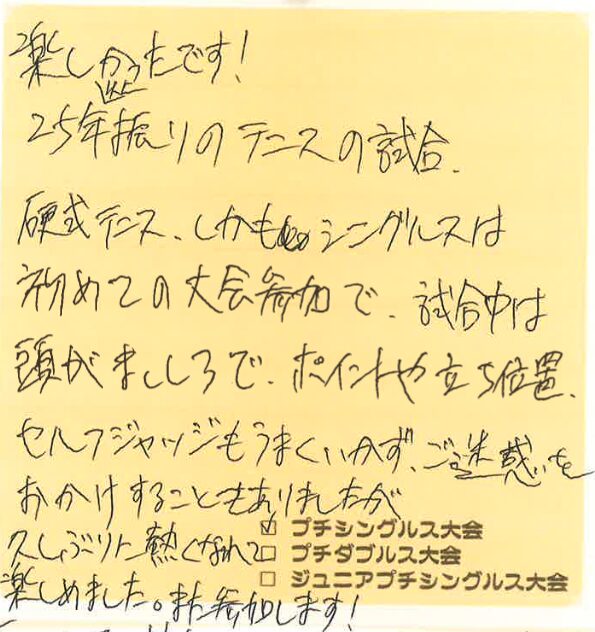 楽しかったです!
25年振りのテニスの試合.
硬式テニス、しかもシングルスは
初めての大会参加で、試合中は
頭がまっしろで、ポイントや立ち位置、
セルフジャッジもうまくいかず、ご迷惑を
おかけすることもありましたが
久しぶりに熱くなれて
楽しめました。また参加します!
☑ プチシングルス大会
□ プチダブルス大会
□ ジュニアプチシングルス大会